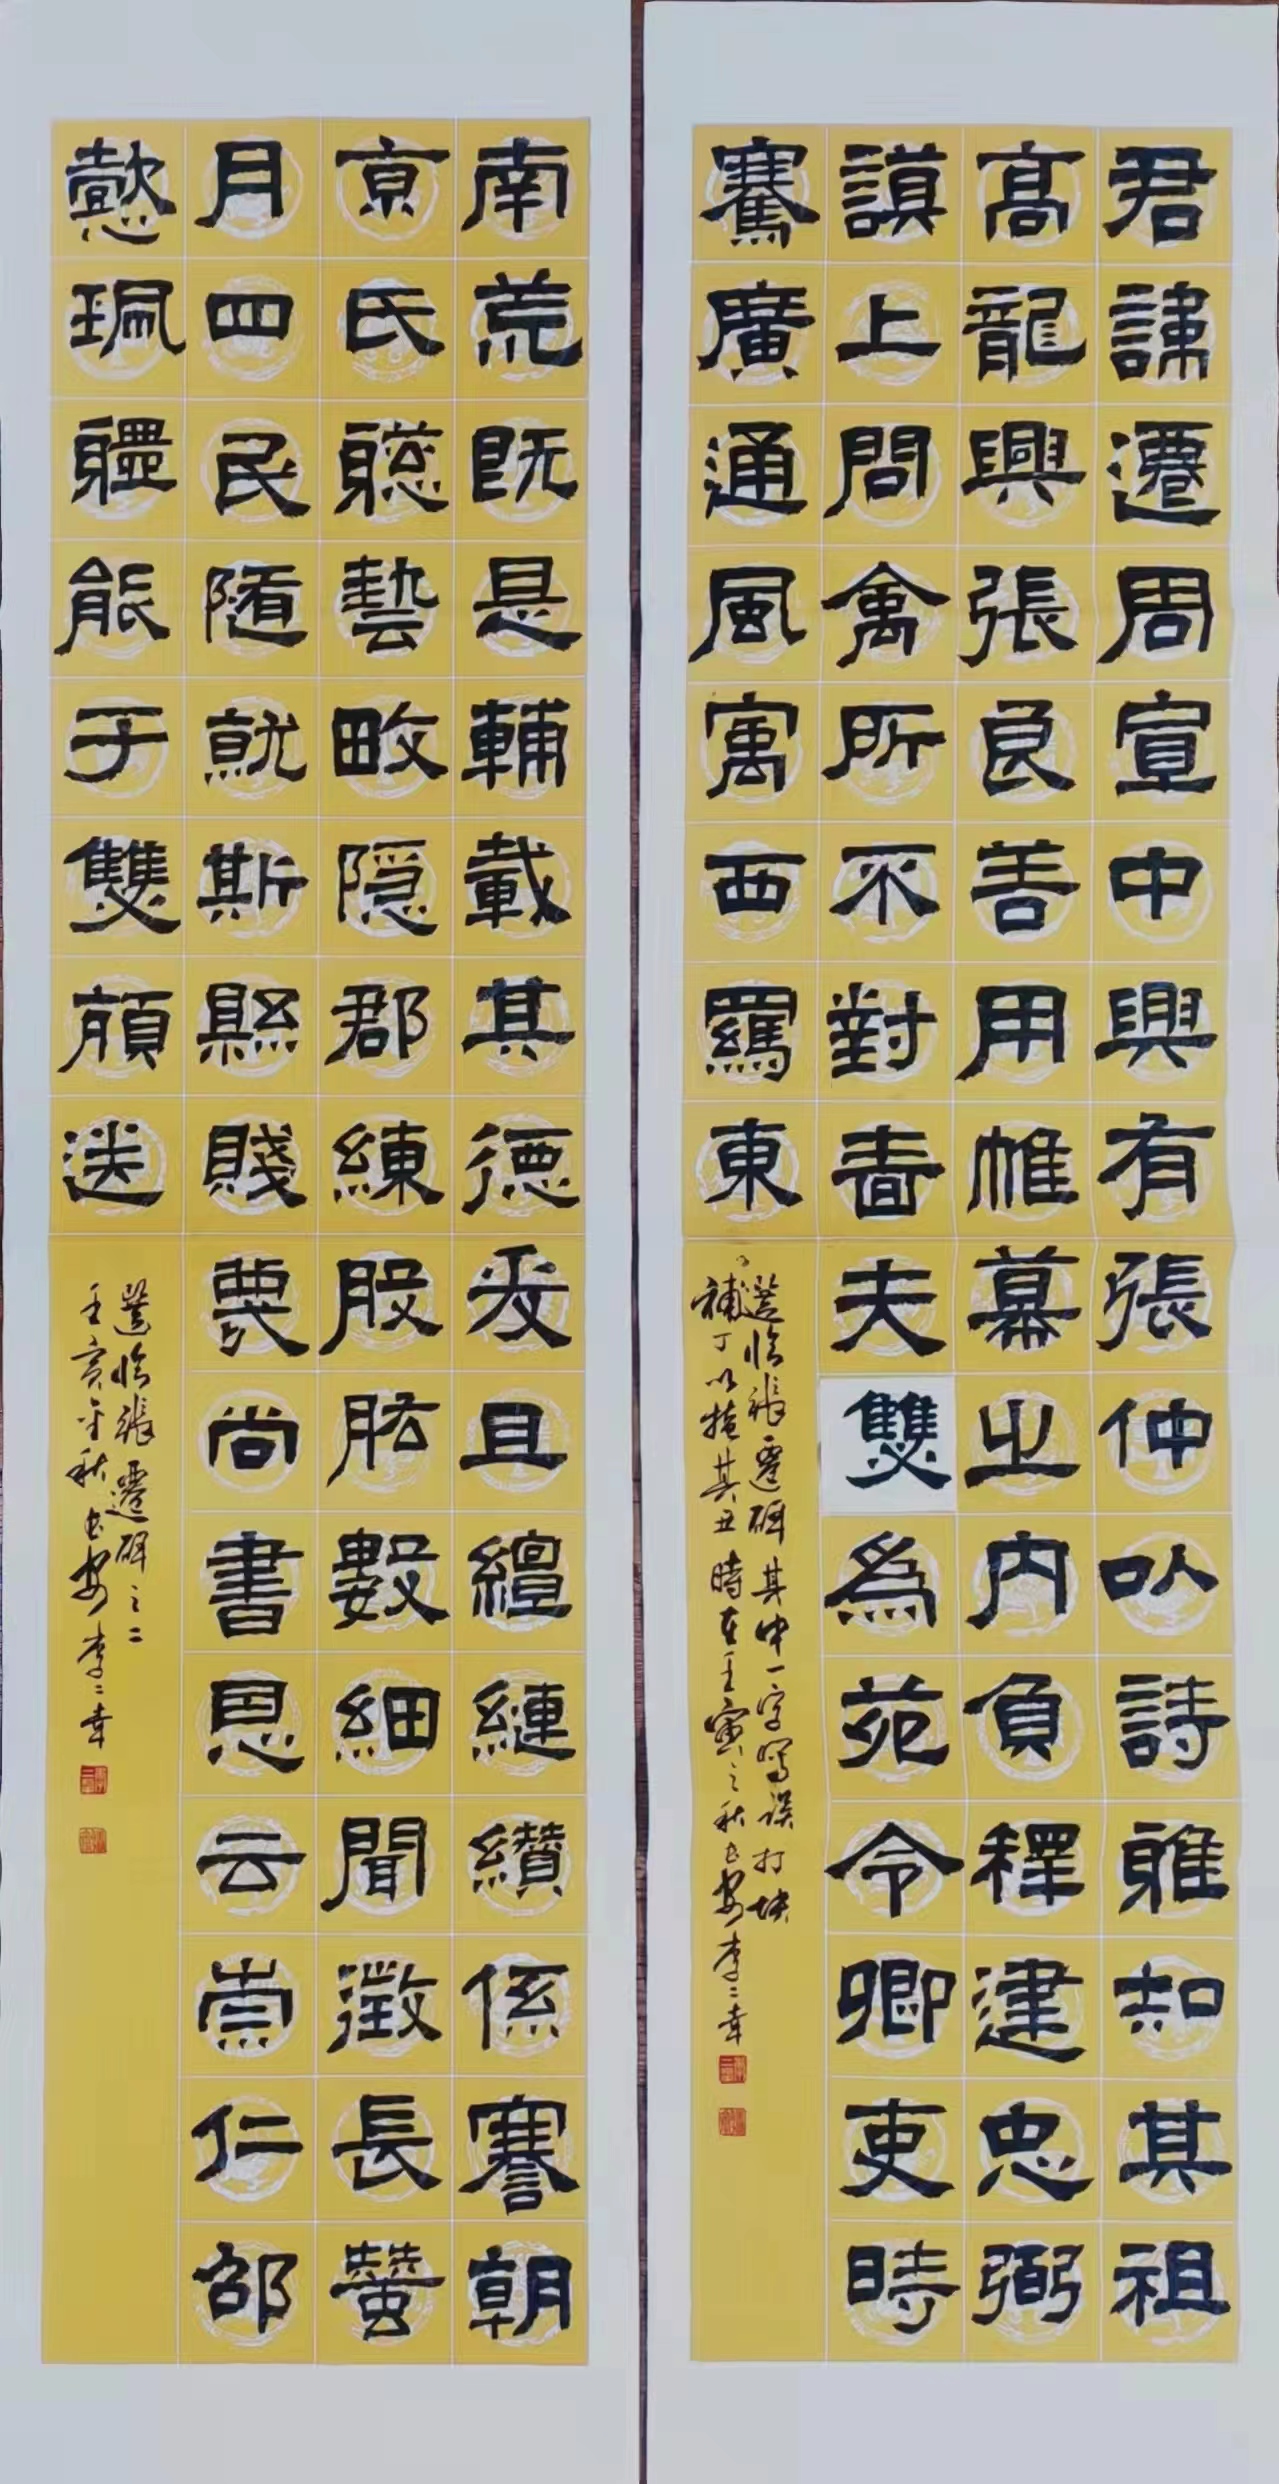 君諱遷周宣中興有張仲以詩雅知其祖
高龍興張良善用帷幕之内負釋建忠弼
謨上問禽所不對嗇夫雙為苑令卿吏時
騫廣通風寓西羈東
選臨張遷碑其中一字寫误打块
補丁以掩其丑時在壬寅之秋長安李
南荒既是輔載其德爰且纏縺纘係謇朝
京氏聽藝畋隱郡練股肱數細聞徵長蠶
月四民随就斯縣賤要尚書恩云崇仁邵
懿珮體能于雙頎送
選臨張遷碑之二
壬寅年秋長安李